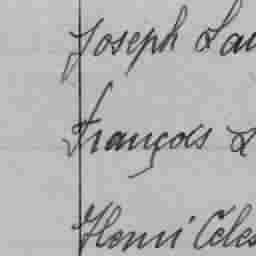 Joseph Lau
François L
Henri Celes